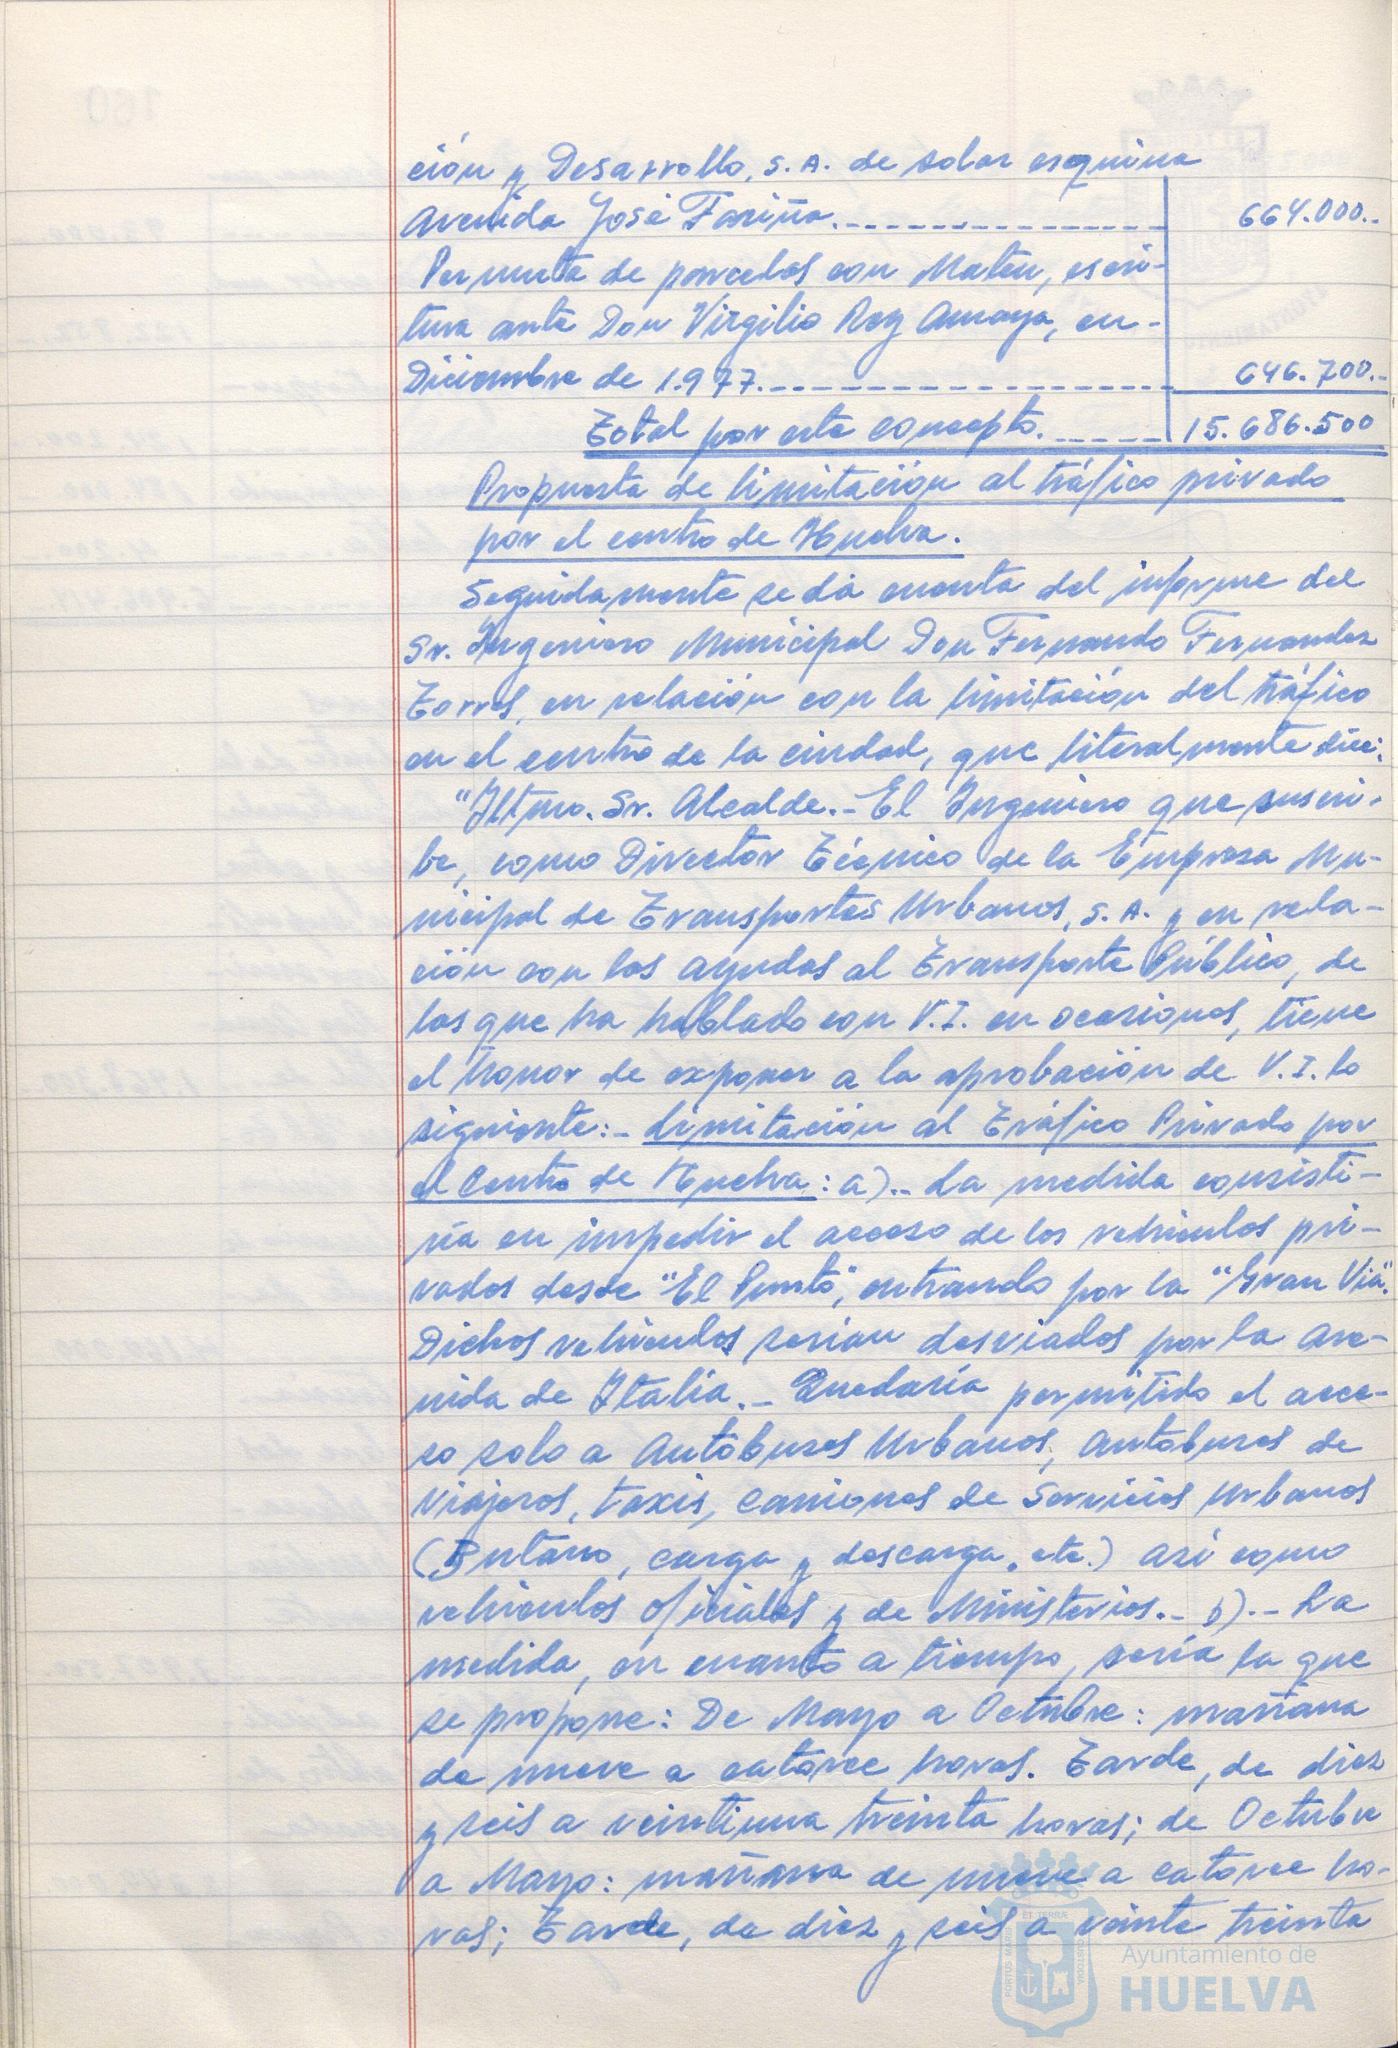 ción y Desarrollo, S.A. de solar esquina
Avenida José Fariña.---------------- 664.000.-
Permuta de parcelas con Mateu, escri-
tura ante Don Virgilio Rey Amaya, en-
Diciembre de 1.977.------------------ 646.700.-
Total por este concepto.------ 15.686.500
Propuesta de limitación al tráfico privado
por el centro de Huelva.
Seguidamente se dá cuenta del informe del
Sr. Ingeniero Municipal Don Fernando Fernandez
Torres, en relación con la limitación del tráfico
en el centro de la ciudad, que literalmente dice:
"Iltmo. Sr. Alcalde.- El Ingeniero que suscri-
be, como Director Técnico de la Empresa Mu-
nicipal de Transportes Urbanos, S.A. y en rela-
ción con las ayudas al Transporte Público, de
las que ha hablado con V.I. en ocasiones, tiene
el honor de exponer a la aprobación de V.I. lo
siguiente:- Limitación al Tráfico Privado por
el Centro de Huelva: a).- La medida consisti-
ría en impedir el acceso de los vehículos pri-
vados desde "El Punto", entrando por la "Gran Vía".
Dichos vehículos serían desviados por la Ave-
nida de Italia.- Quedaría permitido el acce-
so solo a Autobuses Urbanos, autobuses de
Viajeros, taxis, camiones de Servicios Urbanos
(Butano, carga y descarga, etc.) así como
vehículos oficiales y de Ministerios.- b).- La
medida, en cuanto a tiempo, sería la que
se propone: De Mayo a Octubre: mañana
de nueve a catorce horas. Tarde, de diez
y seis a veintiuna treinta horas; de Octubre
a Mayo: mañana de nueve a catorce ho-
ras; Tarde, de diez y seis a veinte treinta
Ayuntamiento de
HUELVA